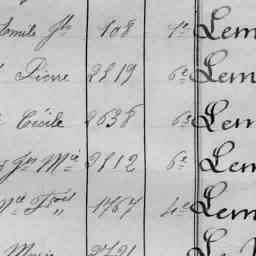 108 1e Lem
Pierre 2819 6e Lem
Cécile 2638 6e Lem
Jn Mie 2812 6e Lem
Vct Frois 1767 4e Lem
Marie 2721 Le